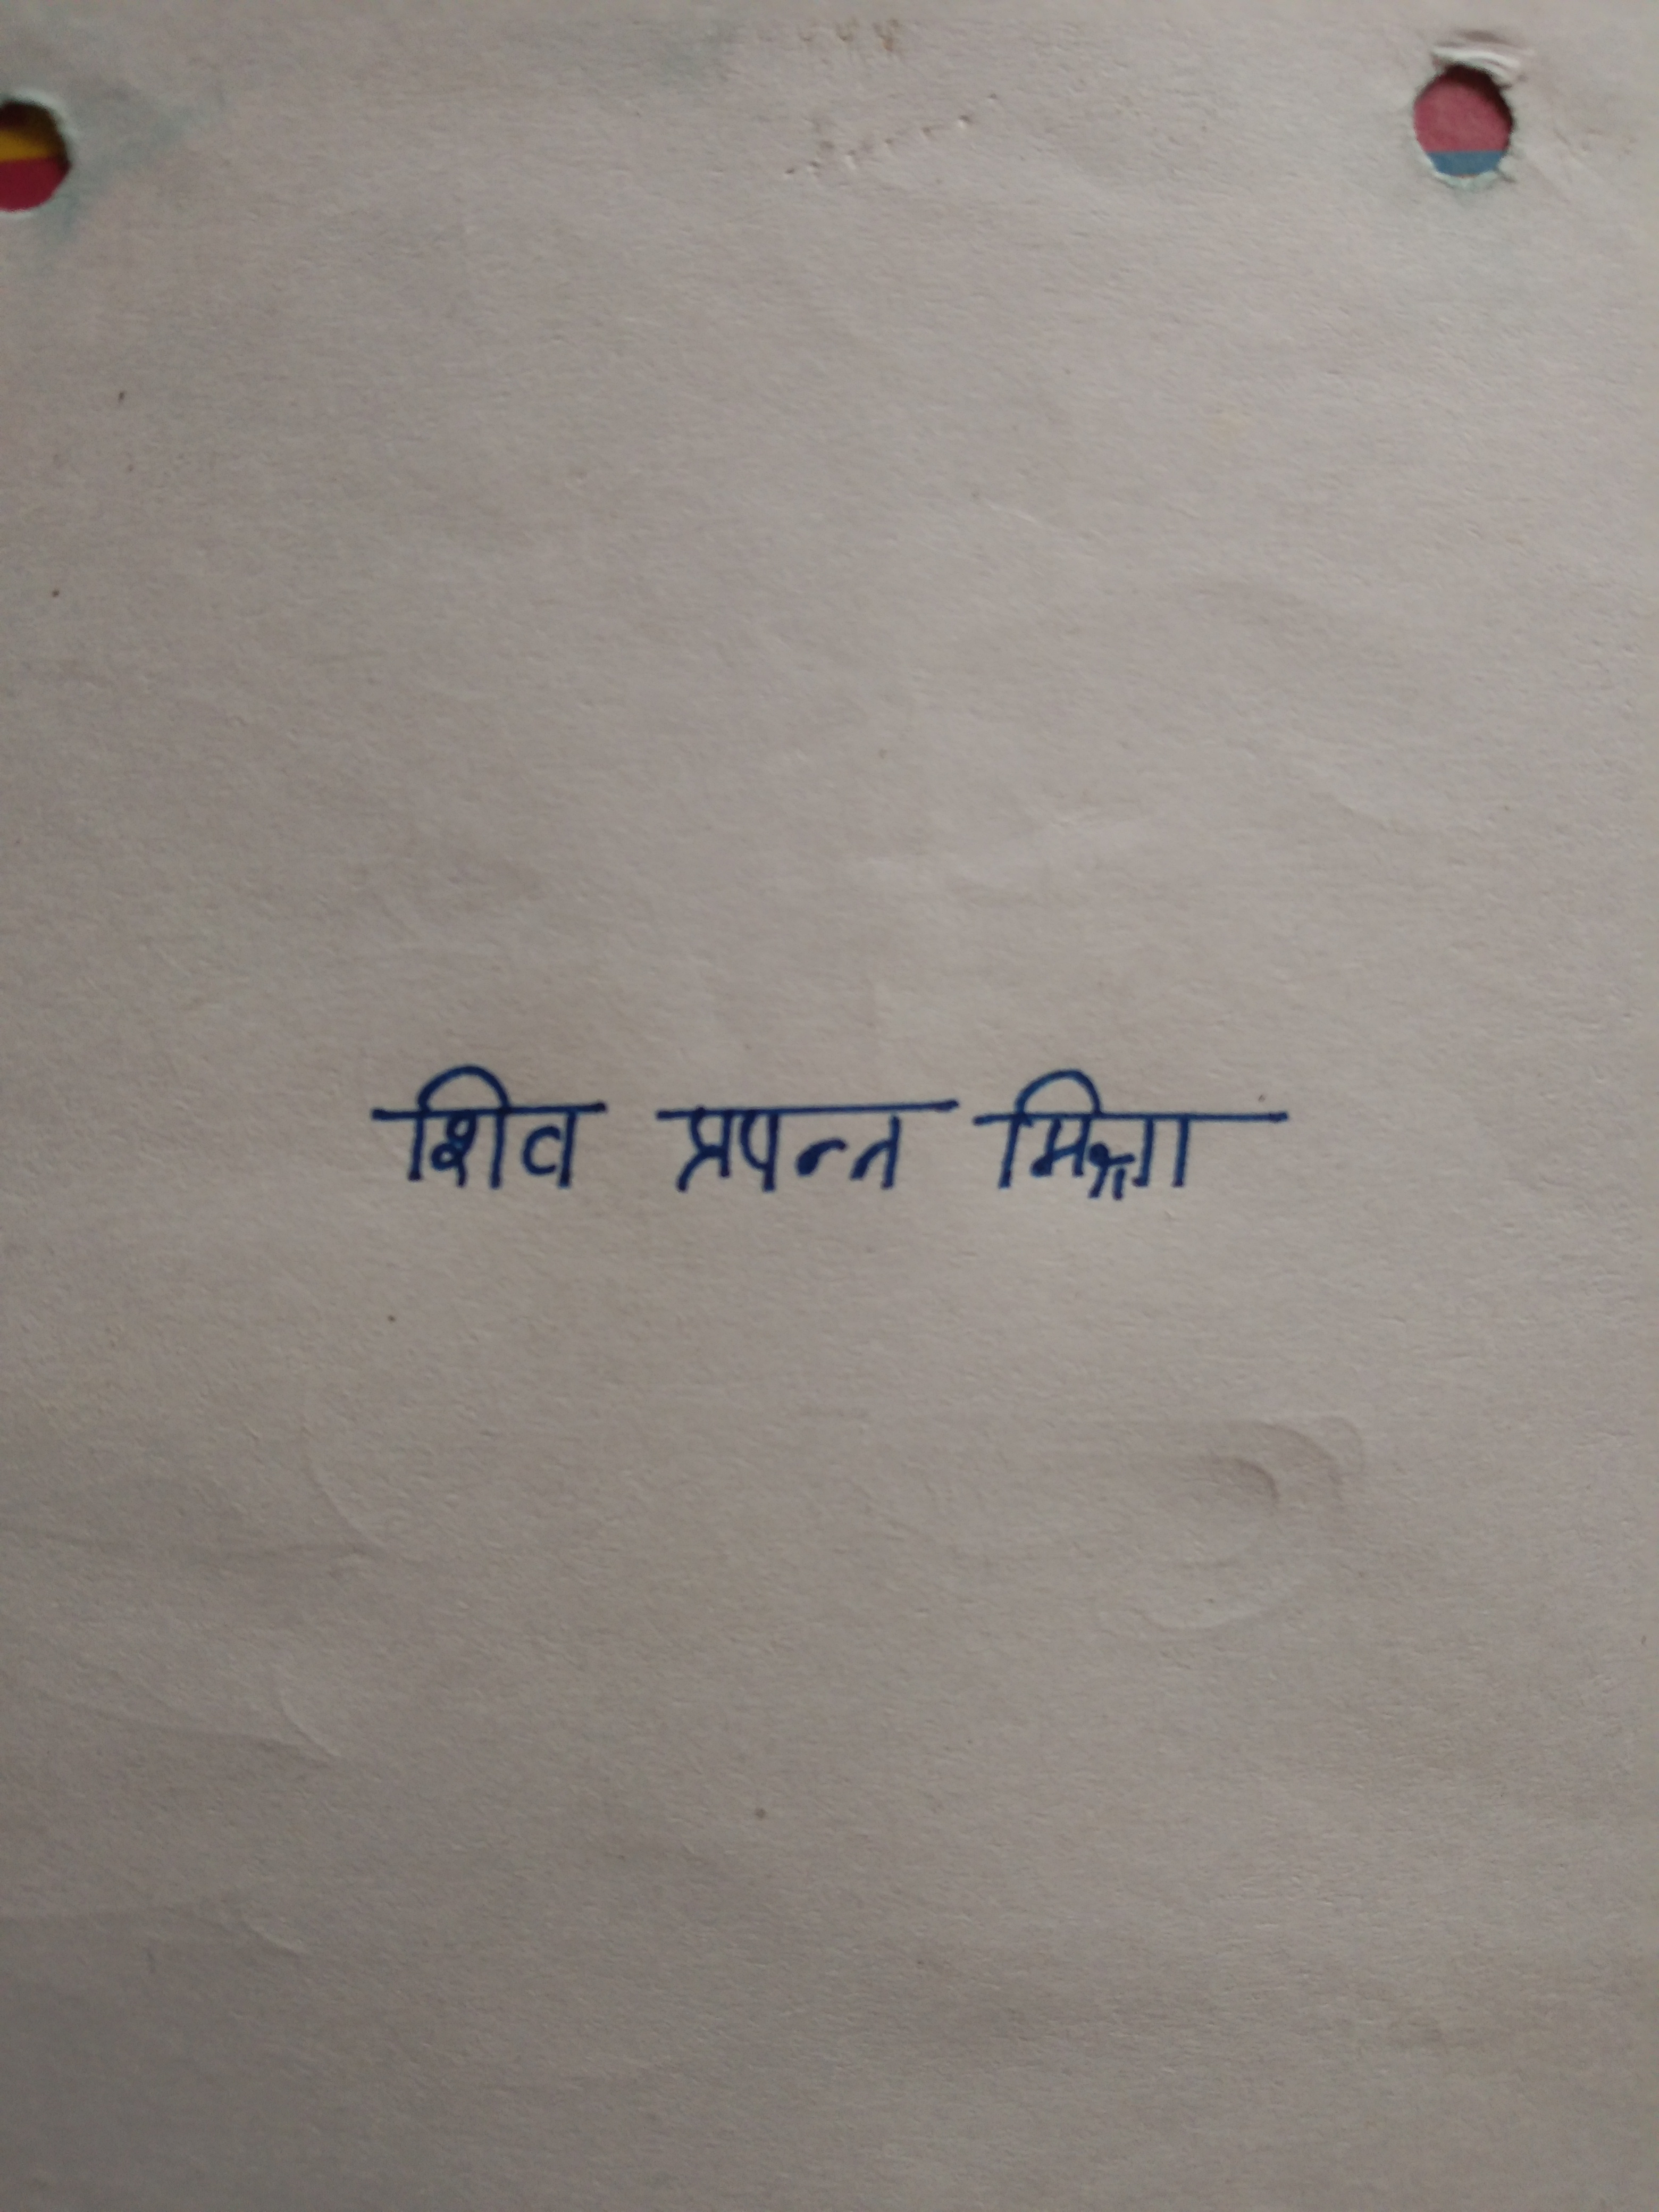 शिव प्रपन्न मिश्रा